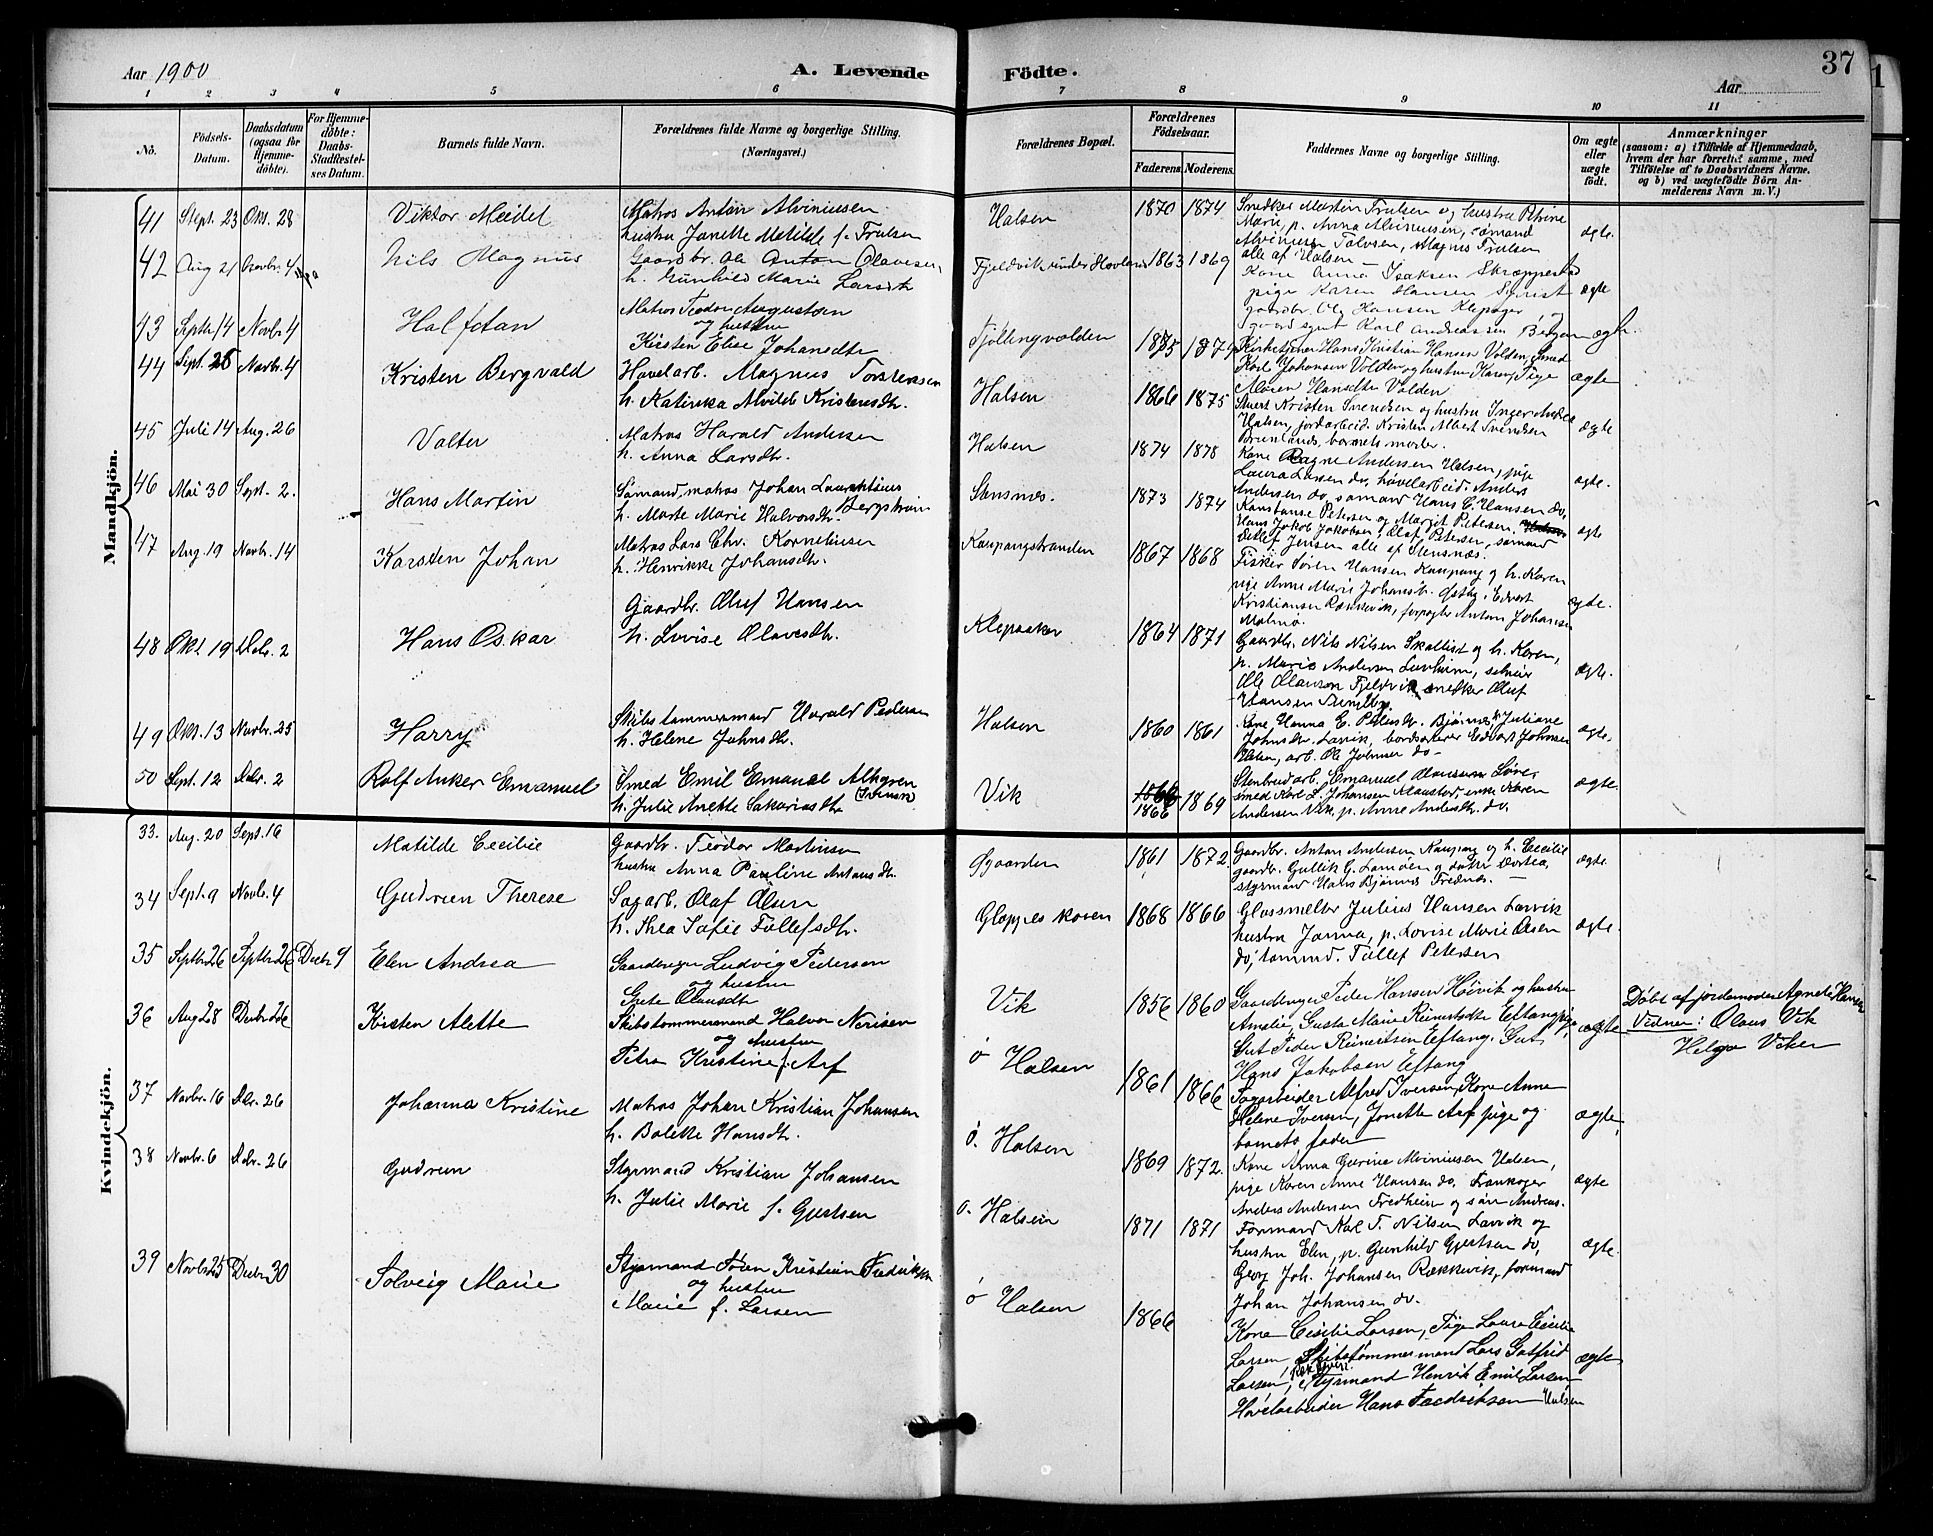 Aar 1900
A. Levende
Födte.
37
Aar
1 2 3 4 5 6 7 8 9 10 11
No.
Födsels-
Datum.
Daabsdatum
(ogsaa for
Hjemme-
döbte).
For Hjemme-
döbte:
Daabs-
Stadfæstel-
ses Datum.
Barnets fulde Navn.
Forældrenes fulde Navne og borgerlige Stilling.
(Næringsvei.)
Forældrenes Bopæl.
Forældrenes
Födselsaar.
Faderens. Moderens.
Faddernes Navne og borgerlige Stilling.
Om ægte
eller
uægte
født.
Anmærkninger
(saasom: a) i Tilfælde af Hjemmedaab,
hvem der har forrettet samme, med
Tilföielse af to Daabsvidners Navne,
og b) ved uægtefödte Börn An-
melderens Navn m. V.)
Mandkjön.
41 Sept. 23 Okt. 28 Viktor Meidel
Matros Anton Alviniussen
hustru Janette Matilde f. Trulsen
Halsen 1870 1874
Snedker Martin Trulsen og hustru Petrine
Marie, p. Anna Alviniussen, sømand
Alvinius Talvsen, Magnus Trulsen
alle af Halsen
ægte.
42 Aug 21 Novbr. 4 Nils Magnus
Gaardbr. Ole Anton Olavesen
h. Gunhild Marie Larsdtr
Fjeldvik under Hovland 1863 1869
Kone Anna Isaksen Skreppestad
pige Karen Hansen
gaardbr. Ole Hansen Klepager
Karl Andreassen Bergan
ægte
43 Septbr 14 Novbr. 4 Halfdan
Matros Teodor Augustsen
og hustru
Kirsten Elise Johansdtr
Tjøllingvolden 1875 1879
Kirketjener Hans Kristian Hansen Volden, Smed
Karl Johansen Volden og hustru Karen, Pige
Maren Hansdtr Volden
ægte.
44 Sept. 25 Novbr. 4 Kristen Bergvald
Høvelarb. Magnus Torstensen
h. Katinka Alvilde Kristensdtr.
Halsen 1866 1875
Stuert Kristen Svendsen og hustru Inger
Halsen, jordarbeid. Kristen Albert Svendsen
Brunlanes, barnets moder.
ægte
45 Juli 14 Aug. 26 Valter
Matros Harald Andersen
h. Anna Larsdtr.
Halsen 1874 1878
Kone Ragne Andersen Halsen, pige
Laura Larsen do, høvelarbeid. Anders
Andersen do, sømand Hans C. Hansen do,
ægte
46 Mai 30 Sept. 2. Hans Martin
Sømand, matros Johan Laurentsius
Bergstrøm
h. Marte Marie Halvorsdtr.
Stensnes. 1873 1874
Konstanse Petersen og Margit Petersen,
Hans Jakob Jakobsen, Olaf Petersen, sømand
Detlef Jensen alle af Stensnæs.
ægte.
47 Aug. 19 Novbr. 14 Karsten Johan
Matros Lars Chr. Korneliusen
h. Henrikke Johansdtr.
Kaupangstranden 1867 1868
Fisker Søren Hansen Kaupang og h. Karen
pige Anne Marie Johansdtr. Østby, Edvart
Kristiansen Rækkevik, forpagter Anton Johansen
Malmø.
ægte
48 Okt. 19 Debr. 2 Hans Oskar
Gaardbr. Oluf Hansen
h. Lovise Olavesdtr.
Klepaaker 1864 1871
Gaardbr. Nils Nilsen Skallist og h. Karen,
p. Marie Andersen
Ole Olausen Fjeldvik snedker Oluf
Hansen Sundby.
ægte.
49 Okt. 13 Novbr. 25 Harry
Skibstømmermand Harald Pedersen
h. Helene Johnsdtr.
Halsen 1860 1861
Kone Hanna E. Bjønnes, Juliane
Johnsdtr. Larvik, bordskriver Edvart Johnsen
Halsen, arb. Ole Johnsen do
ægte.
50 Sept. 12 Debr. 2 Rolf Anker Emanuel
Smed Emil Emanuel Alhgren
(Svensk)
h. Julie Anette Sakariasdtr.
Vik 1866 1869
Stenbrudarb. Emanuel Olaussen
smed Karl L. Johansen, enke Karen
Andersen Vik, p. Anne Andersdtr. do.
ægte
Kvindekjön.
33. Aug. 20 Sept. 16 Matilde Cecilie
Gaardbr. Teodor Martinsen
hustru Anna Pauline Antonsdtr.
Øgaarden 1861 1872.
Gaardbr. Anton Andersen Kaupang og h. Cecilie
gaardbr. Gullik G. Lamøen og
styrmand Hans Bjønnes Frednes.
ægte
34 Sept. 9 Novbr. 4 Gudrun Therese
Sagarb. Olaf Olsen
h. Thea Sofie Tollefsdtr.
Gloppeskoven 1868 1866
Glassmelter Julius Hansen Larvik
hustru Janna, p. Lovise Marie Olsen
do, tømmd. Tollef Petersen
ægte.
35 Septbr 26 Septbr 26 Decbr 9 Elen Andrea
Gaardeier Ludvig Pedersen
og hustru
Grete Olausdtr
Vik 1856 1860
Gaardeier Peder Hansen Høivik og hustru
Amalie, Gusta Marie Reinertsdtr Eftang pige,
Gut Peder Reinertsen Eftang. Gut
Hans Jakobsen Eftang
ægte
Døbt af jordemoder Agnete Hansen
Vidner: Olaus Vik
Helga Viker
36 Aug 28 Decbr 26 Kirsten Alette
Skibstømmermand Halvor Nirisen
og hustru
Petra Kristine f. Arf
ø Halsen 1861 1866
Sagarbeider Alfred Iversen, Kone Anne
Helene Iversen, Jonette Arf pige og
barnets fader
ægte,
37 Novbr. 16 Debr. 26 Johanna Kristine
Matros Johan Kristian Johansen
h. Bolette Hansdtr.
ø. Halsen 1869 1872.
Kone Anna Gurine Alviniusen Halsen,
pige Karen Anne Hansen do.
Anders Andersen Fredheim og søn Andreas.
ægte
38 Novbr. 6 Debr. 26 Gudrun
Styrmand Kristian Johansen
h. Julie Marie f. Gjertsen
ø. Halsen 1871 1871
Formand Karl T. Nilsen Larvik og
hustru Elen, p. Gunhild Gjertsen do,
Georg Joh. Johansen Rækkevik, formand
Johan Johansen do.
ægte.
39 Novbr 25 Decbr 30 Solveig Marie
Styrmand Søren Kristian Fredriksen
og hustru
Marie f. Larsen
ø Halsen 1866
Kone Cicilie Larsen, Pige Laura Cicilie
Larsen, Skibstømmermand Lars Gotfrid
Larsen, Styrmand Henrik Emil Larsen
Høvelarbeider Hans Fredriksen Halsen
ægte